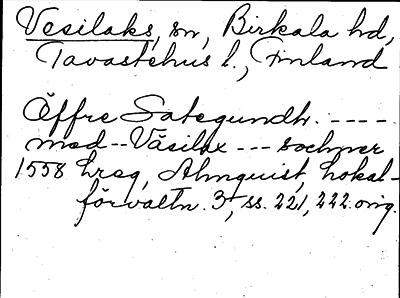 Vesilaks, sn, Birkala hd,
Tavastehus l., Finland
Öffre Sategundh. ----
med -- Väsilax --- sochner
1558 hreg, Almquist, Lokal-
förvaltn. 3, ss. 221, 222 orig.